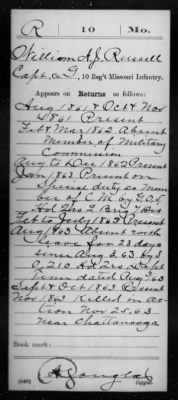 R 10 Mo.
William A. J. Russell
Capt., Co. I, 10 Reg't Missouri Infantry.
Appears on Returns as follows:
Aug 1861 & Oct & Nov
1861 Present
Feb & Mar 1862 Absent
Member of Military
Commission
Aug to Dec 1862 Present
Jan 1863 Present on
Special duty as Mem
ber of C.M. by S.O.
Hd Qrs 2 Brig
Feb to July 1863 Present
Aug 1863 Absent with
leave for 23 days
since Aug 3. 63 by S
O 210 Hd Qrs Dept
Tenn dated Aug 63
Sept & Oct 1863 Present
Nov 1863 Killed in ac
tion Nov 25. 63
near Chattanooga
Book mark:
(546)
Copyist.